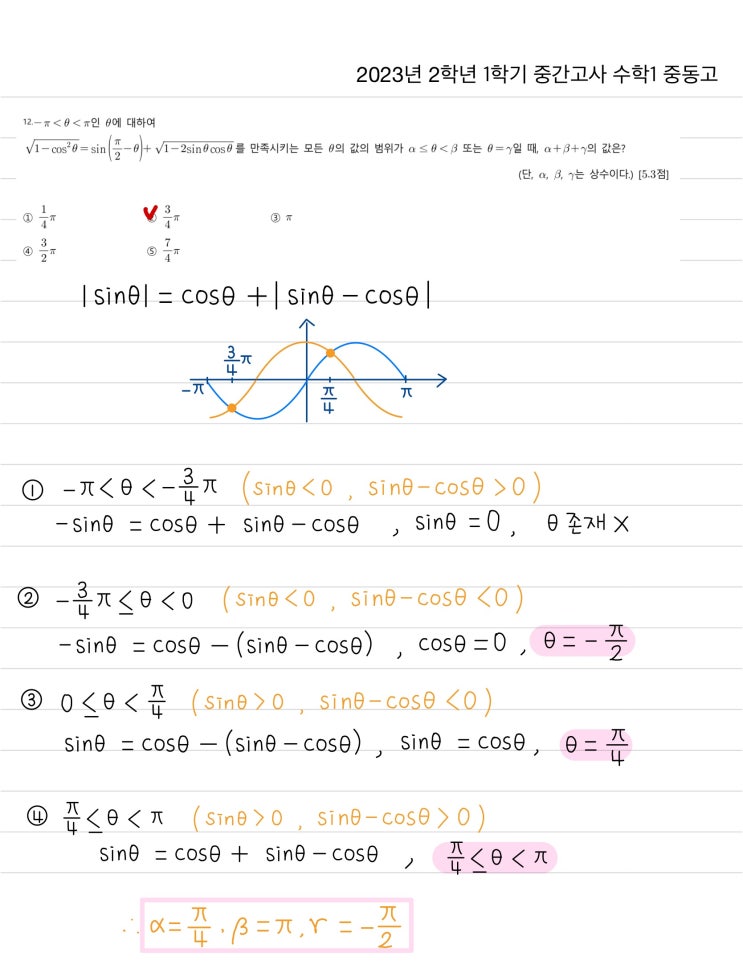 2023년 2학년 1학기 중간고사 수학1 중동고
12. -π<θ<π인 θ에 대하여
√(1-cos²θ) = sin(π/2-θ) + √(1-2sinθcosθ) 를 만족시키는 모든 θ의 값의 범위가 α≤θ<β 또는 θ=γ일 때, α+β+γ의 값은?
(단, α, β, γ는 상수이다.) [5.3점]
① 1/4 π ② 3/4 π ③ π
④ 3/2 π ⑤ 7/4 π
|sinθ| = cosθ + |sinθ - cosθ|
3/4 π
-π π/4 π
① -π<θ<-3/4 π (sinθ<0 , sinθ-cosθ>0)
-sinθ = cosθ + sinθ-cosθ , sinθ=0, θ 존재 X
② -3/4 π≤θ<0 (sinθ<0 , sinθ-cosθ<0)
-sinθ = cosθ - (sinθ-cosθ) , cosθ=0, θ=-π/2
③ 0≤θ<π/4 (sinθ>0 , sinθ-cosθ<0)
sinθ = cosθ - (sinθ-cosθ) , sinθ = cosθ, θ=π/4
④ π/4≤θ<π (sinθ>0 , sinθ-cosθ>0)
sinθ = cosθ + sinθ-cosθ , π/4≤θ<π
∴ α=π/4 , β=π, γ=-π/2